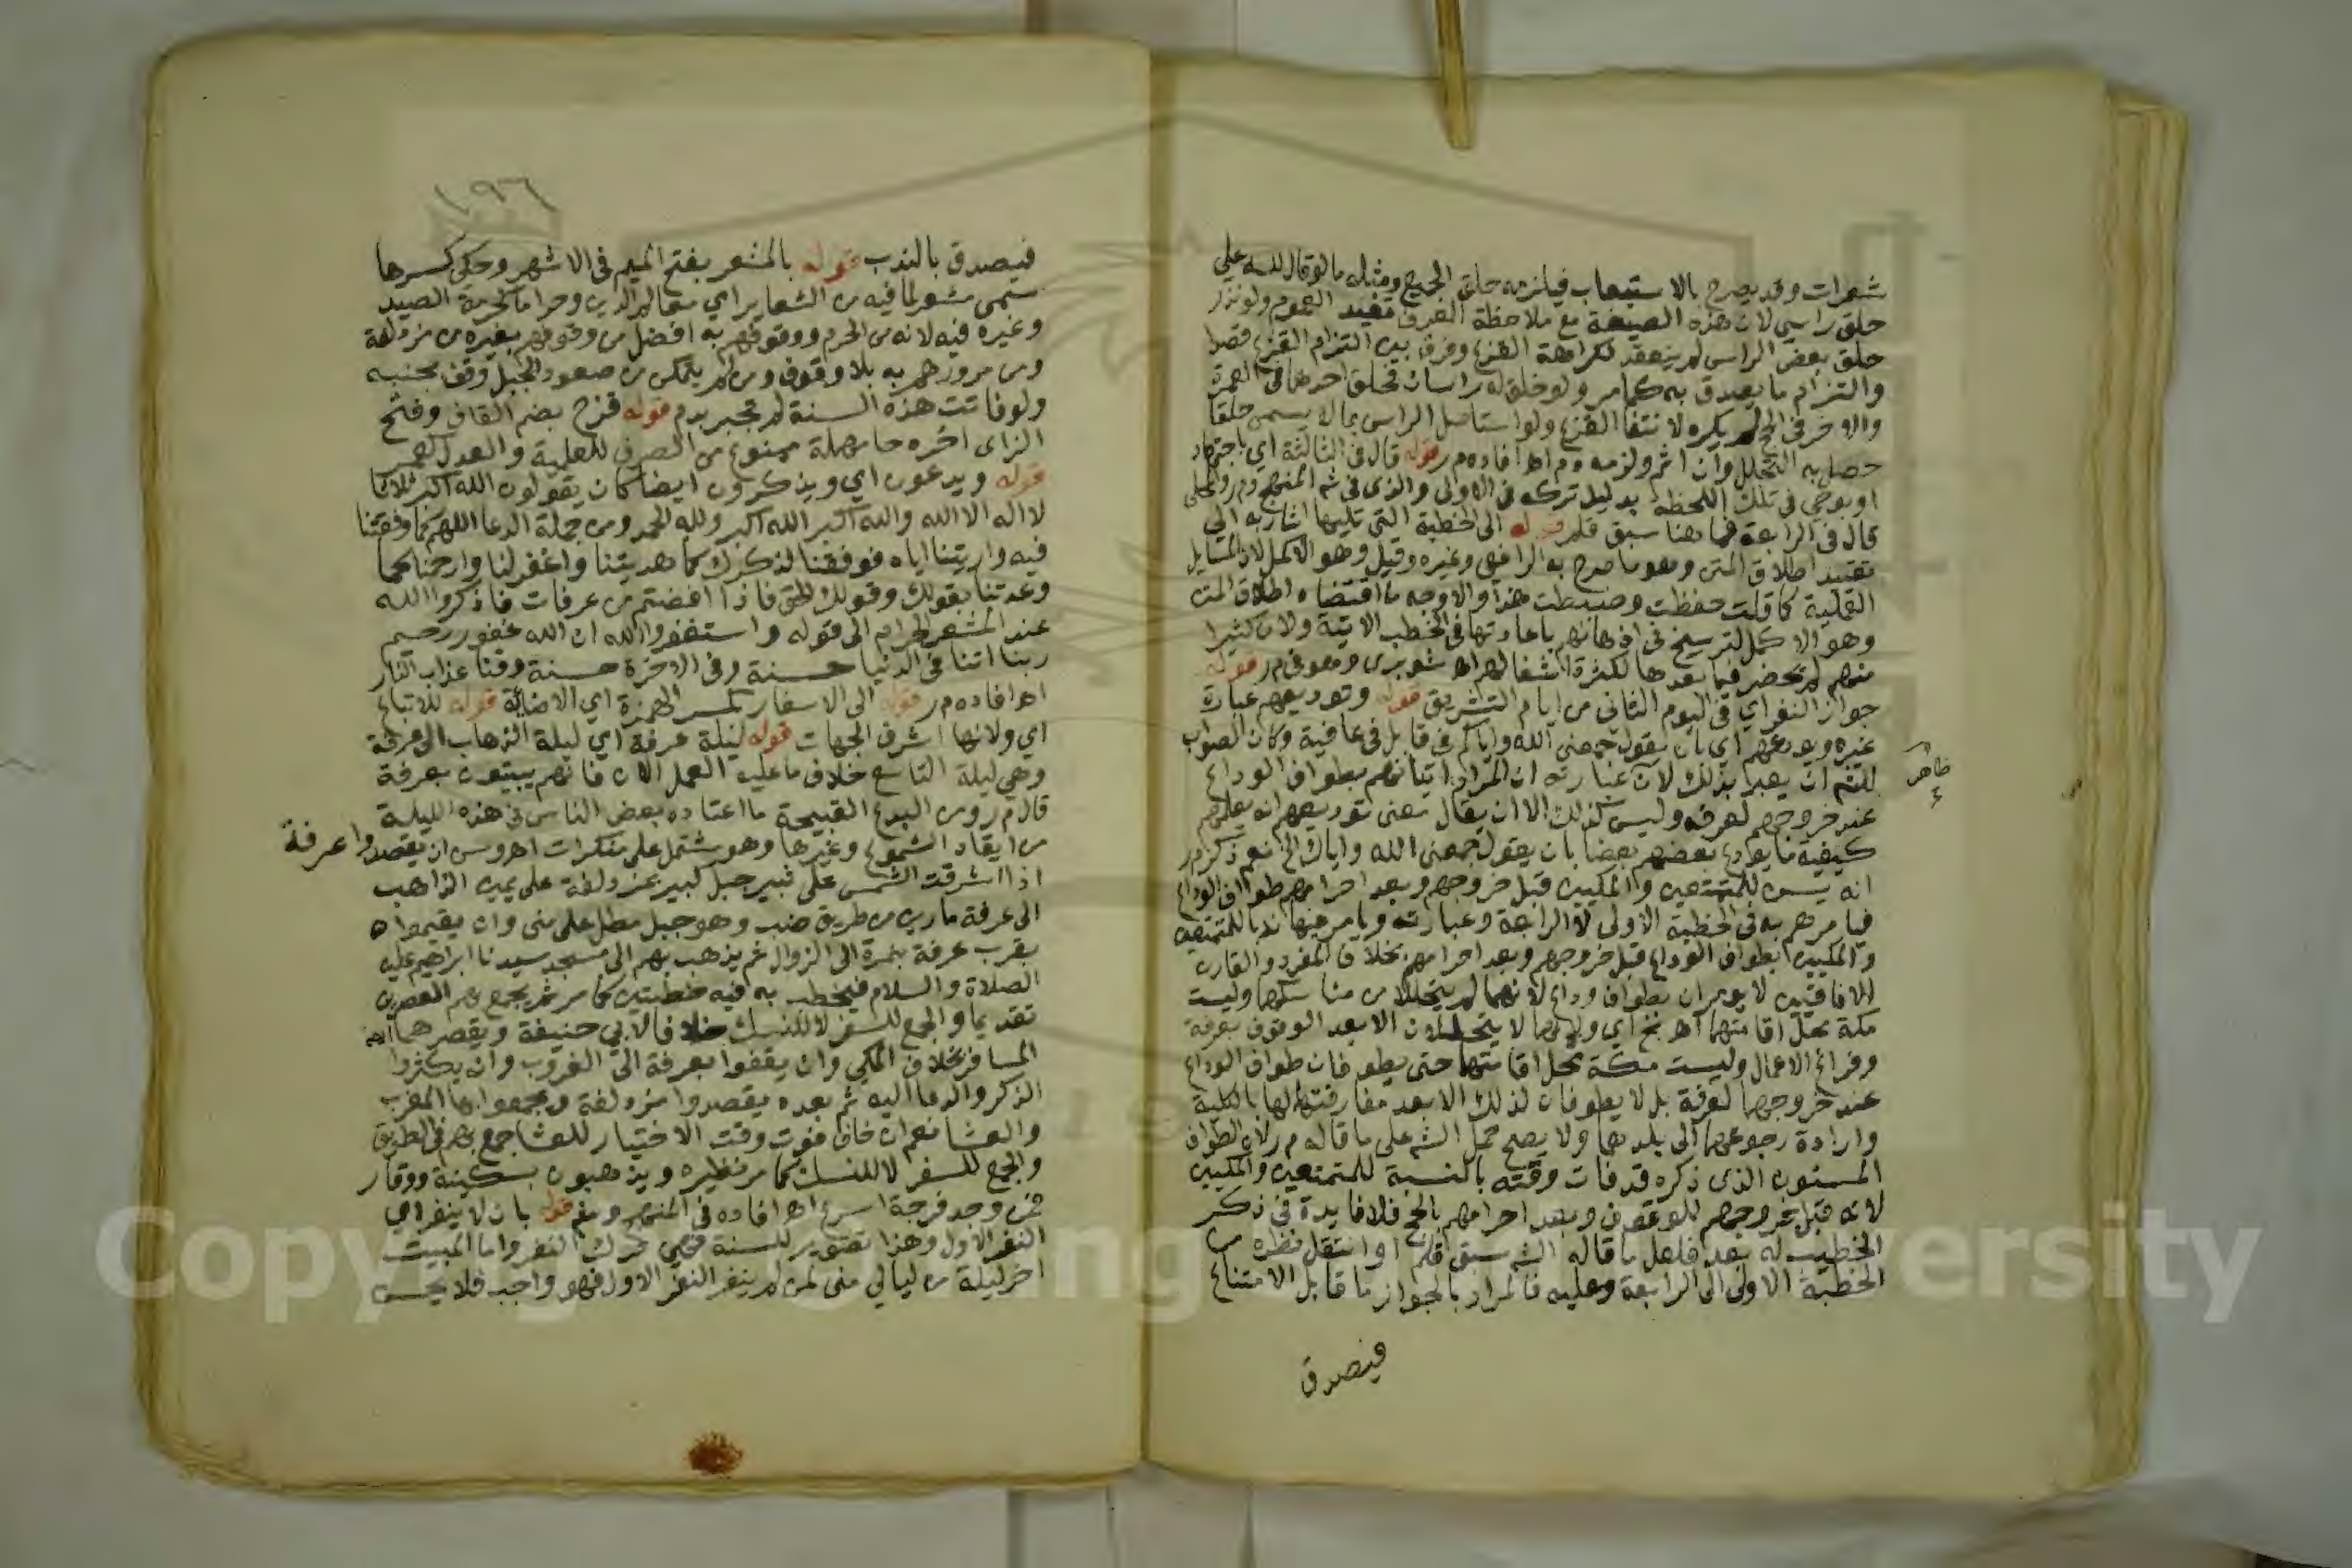 شعرات وقد يصرح بالاستيعاب فيلزمه حلق الجميع ومثله ما لو قال لله علي
حلق راسي لان هذه الصيغة مع ملاحظة العرف تفيد العموم ولو نذر
حلق بعض الراس لم ينعقد لكراهة القزع وفرق بين التزام القزع قصدا
والتزام ما يصدق به كما مر ولو خلق له راسان فحلق احدهما في العمرة
والاخر في الحج لم يكره لانتفا القزع ولو استاصل الراس بما لا يسمى حلقا
حصل به التحلل وان اثم ولزمه دم اه افاده م ر قوله قال في الثالثة اي باجتهاد
او بوحي في تلك اللحظة بدليل تركه في الاولى والذي في شم المنهج وم ر والمحلى
قال في الرابعة فما هنا سبق قلم قوله الى الخطبة التي تليها اشار به الى
تقييد اطلاق المتن وهو ما صرح به الرافعي وغيره وقيل وهو الاكمل لان المسايل
العلمية كلما قلت حفظت وضبطت هذا والاوجه ما اقتضاه اطلاق المتن
وهو الاكمل لترسيخ في اذهانهم باعادتها في الخطب الاتية ولان كثيرا
منهم لم يحضر فيما بعدها لكثرة اشغالهم اه شوبري ومعوض م ر قوله
جواز النفر اي في اليوم الثاني من ايام التشريق قوله وتوديعهم عبارة
غيره ويودعهم اي بان يقول جمعني الله واياكم في قابل في عافية وكان الصواب
للشم ان يعبر بذلك لان عبارته ان المراد اتيانهم بطواف الوداع
ظاهر
عند خروجهم لعرفه وليس كذلك الا ان يقال معنى توديعهم انه يعلمهم
كيفية ما يوادع بعضهم بعضا بان يقول جمعني الله واياك الخ نعم ذكر م ر
انه يسن للمتمتعين والمكيين قبل خروجهم وبعد احرامهم طواف الوداع
فيامرهم به في الخطبة الاولى لا الرابعة وعبارته ويامر فيها ندبا للمتمتعين
والمكيين بطواف الوداع قبل خروجهم وبعد احرامهم بخلاف المفرد والقارن
الافاقيين لا يومران بطواف وداع لانهما لم يتحللا من مناسكهما وليست
مكة محل اقامتهما اه بخ اي ولانهما لا يتحللان الا بعد الوقوف بعرفة
وفراغ الاعمال وليست مكة محل اقامتهما حتى يطوفان طواف الوداع
عند خروجهما لعرفة بل لا يطوفان لذلك الا بعد مفارقتهما لها بالكلية
وارادة رجوعهما الى بلدهما ولا يصح حمل الشم على ما قاله م ر لان الطواف
المسنون الذي ذكره قد فات وقته بالنسبة للمتمتعين والمكيين
لانه قبل خروجهم للوقوف وبعد احرامهم بالحج فلا فايدة في ذكر
الخطيب له بعد فلعل ما قاله الشم سبق قلم او انتقل نظره من
الخطبة الاولى الى الرابعة وعليه فالمراد بالجواز ما قابل الامتناع
فيصدق
١٩٦
فيصدق بالندب قوله بالمشعر بفتح الميم في الاشهر وحكي كسرها
سمى مشعرا لما فيه من الشعاير اي معالم الدين وحراما لحرمة الصيد
وغيره فيه لانه من الحرم ووقوفهم به افضل من وقوفهم بغيره من مزدلفة
ومن مرورهم به بلا وقوف ومن لم يتمكن من صعود الجبل وقف بجنبه
ولو فاتت هذه السنة لم تجبر بدم قوله قزح بضم القاف وفتح
الزاى اخره حا مهملة ممنوع من الصرف للعلمية والعدل كعمر
قوله ويدعون اي ويذكرون ايضا كان يقولون الله اكبر ثلاثا
لا اله الا الله والله اكبر الله اكبر ولله الحمد ومن جملة الدعا اللهم كما وقفتنا
فيه واريتنا اياه فوفقنا لذكرك كما هديتنا واغفر لنا وارحمنا كما
وعدتنا بقولك وقولك الحق فاذا افضتم من عرفات فاذكروا الله
عند المشعر الحرام الى قوله واستغفروا الله ان الله غفور رحيم
ربنا اتنا في الدنيا حسنة وفي الاخرة حسنة وقنا عذاب النار
اه افاده م ر قوله الى الاسفار بكسر الهمزة اي الاضاءة قوله للاتباع
اي ولانها اشرف الجهات قوله ليلة عرفة اي ليلة الذهاب الى عرفة
وهي ليلة التاسع خلاف ما عليه العمل الان فانهم يبيتون بعرفة
قال م ر ومن البدع القبيحة ما اعتاده بعض الناس في هذه الليلة
من ايقاد الشموع وغيرها وهو مشتمل على منكرات اه وسن ان يقصدوا عرفة
اذا اشرقت الشمس على ثبير جبل كبير بمزدلفة على يمين الذاهب
الى عرفة مارين من طريق ضب وهو جبل مطل على منى وان يقيموا
بقرب عرفة بنمرة الى الزوال ثم يذهب بهم الى مسجد سيدنا ابراهيم عليه
الصلاة والسلام فيخطب به فيه خطبتين كما مر ثم يجمع بهم العصرين
تقديما والجمع للسفر لا للنسك خلافا لابي حنيفة ويقصرهما
المسافر بخلاف المكي وان يقفوا بعرفة الى الغروب وان يكثروا
الذكر والدعا اليه ثم بعده يقصدوا مزدلفة ويجمعوا بها المغرب
والعشا نعم ان خاف فوت وقت الاختيار للعشا جمع بهم في الطريق
والجمع للسفر لا للنسك كما مر نظيره ويذهبون بسكينة ووقار
فمن وجد فرجة اسرع اه افاده في المنهج قوله بان لا ينفر اي
النفر الاول وهذا تصوير للسنة فهي ترك النفر واما المبيت
اخر ليلة من ليالي منى لمن لم ينفر النفر الاول فهو واجب فلا يحسن